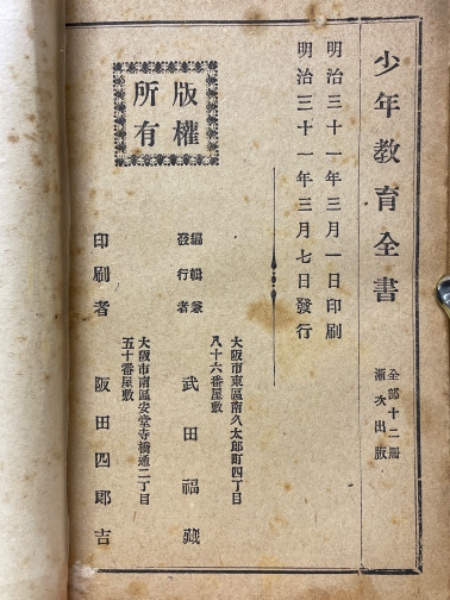 少年教育全書
全部十二冊
漸次出版
明治三十一年三月一日印刷
明治三十一年三月七日發行
版權
所有
大阪市東區南久太郎町四丁目
八十六番屋敷
編輯兼
發行者
武田福藏
大阪市南區安堂寺橋通二丁目
五十番屋敷
印刷者
阪田四郎吉